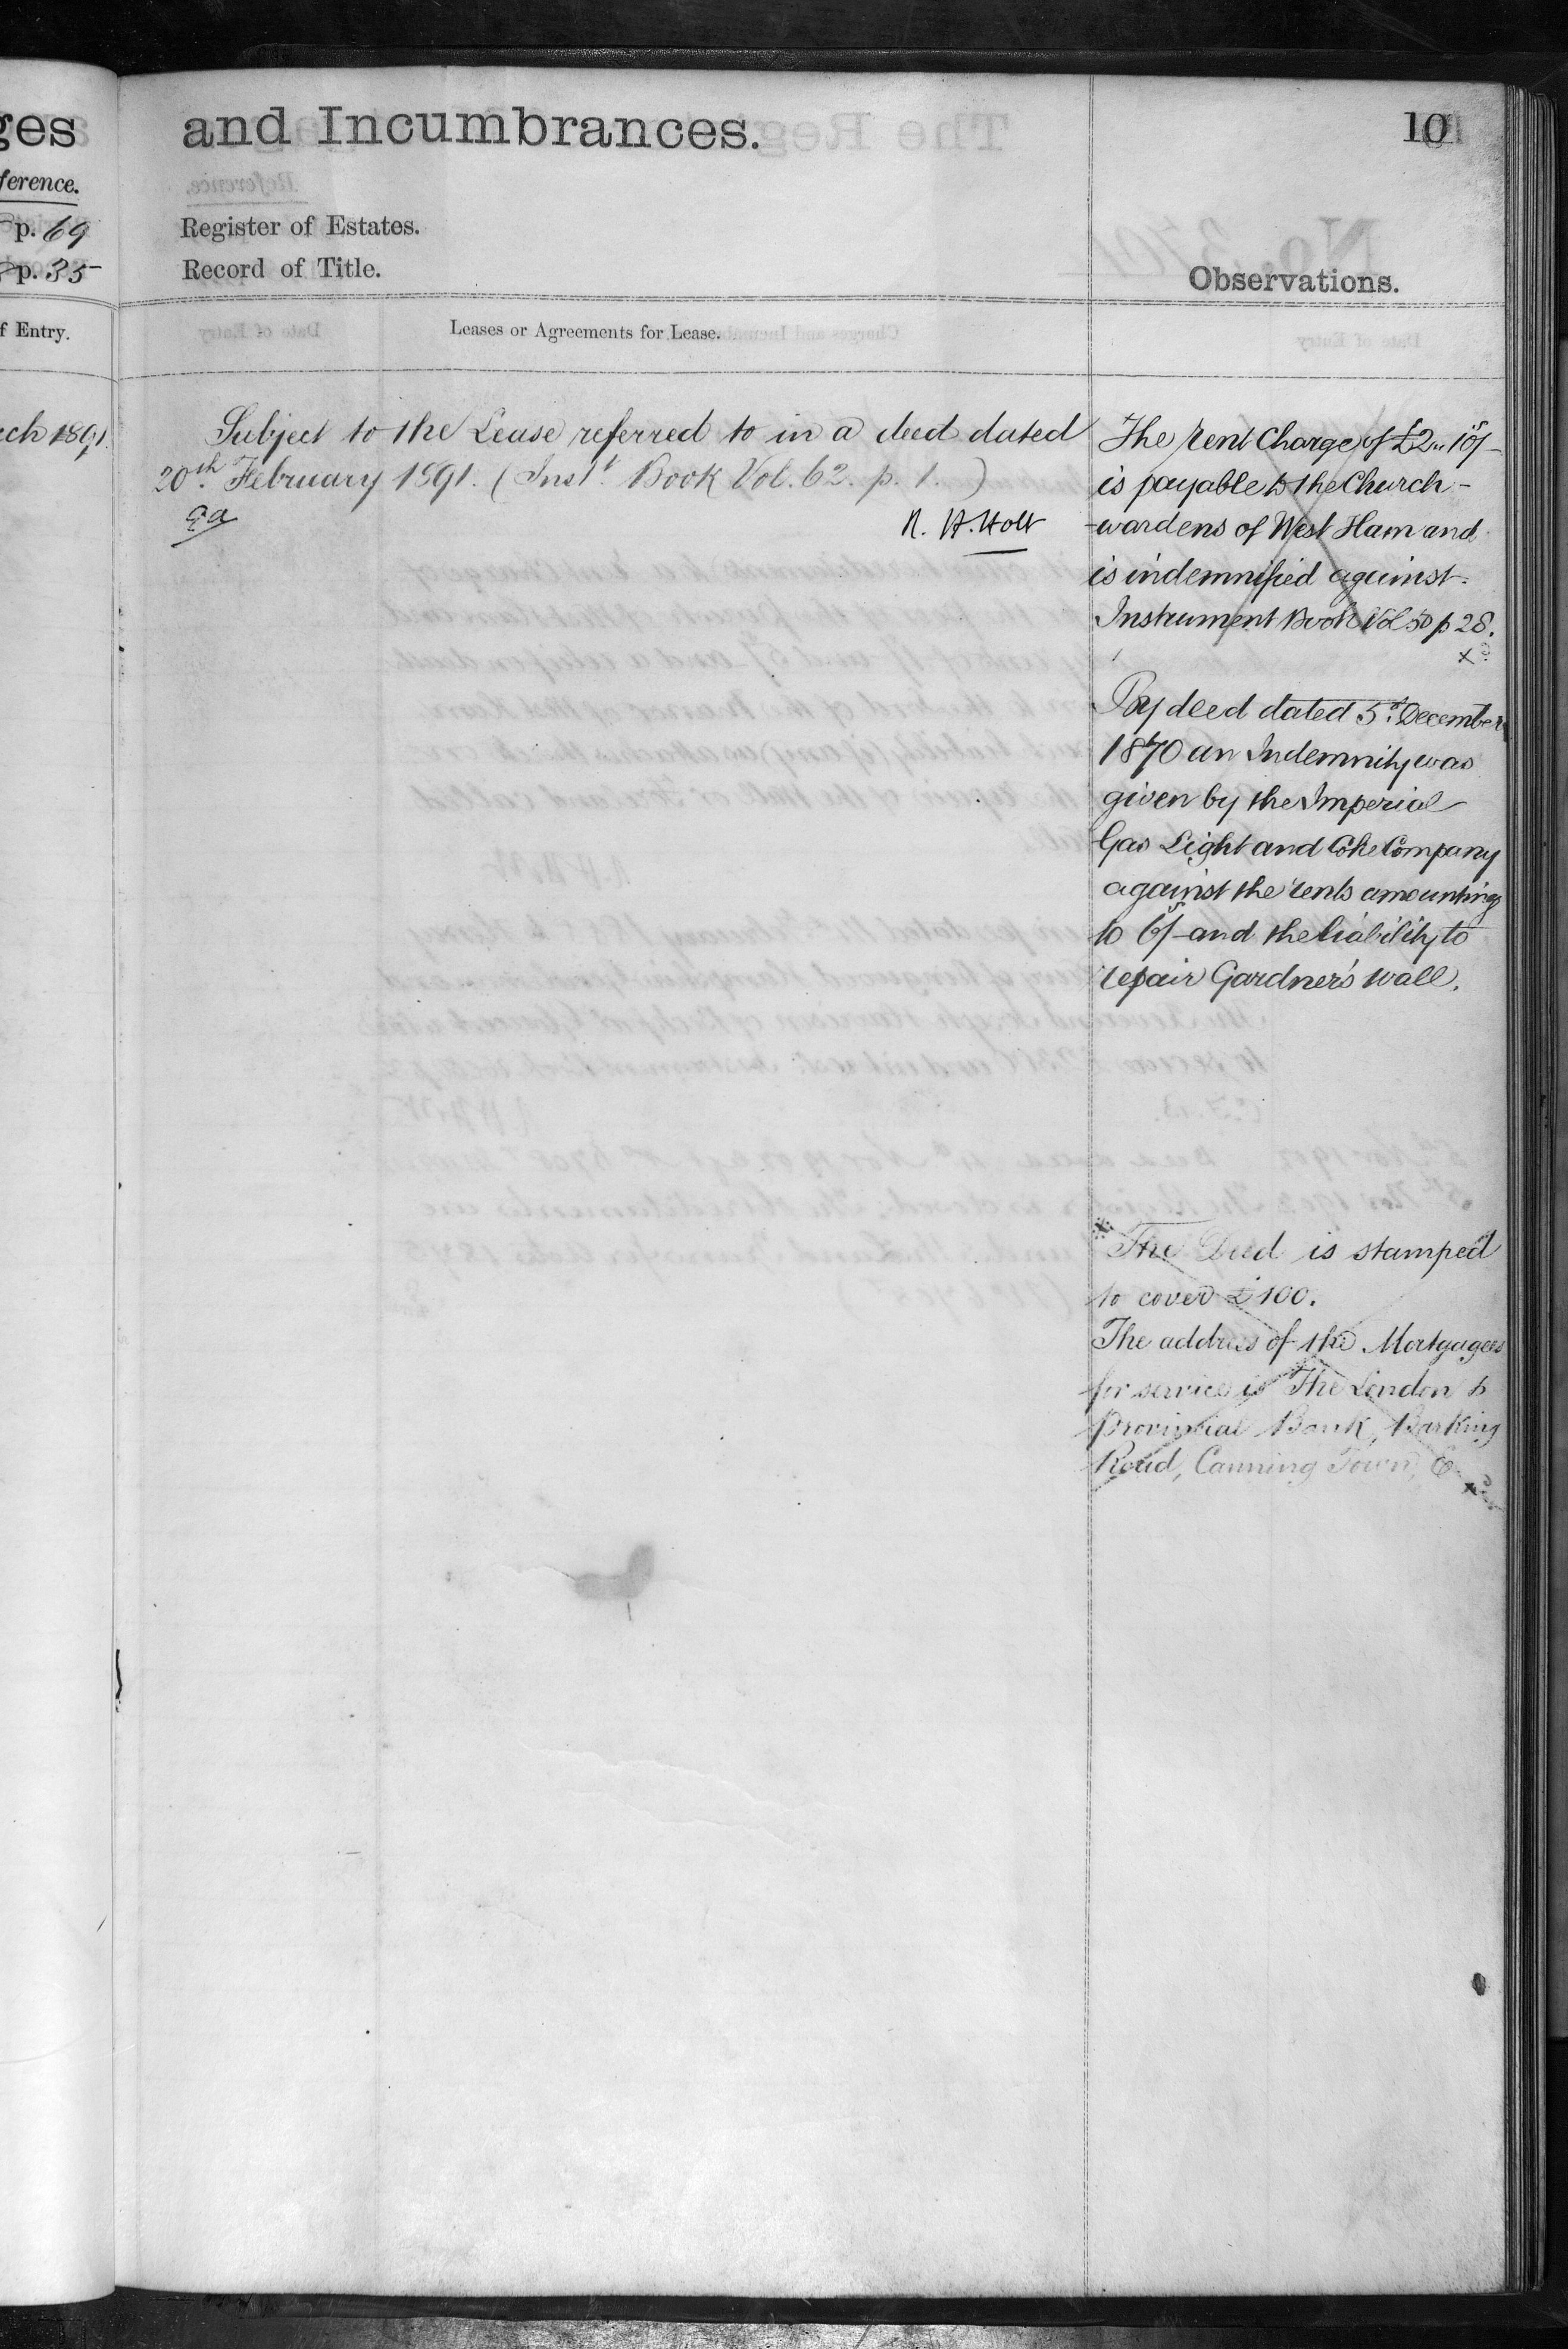 ges
ference.
p. 69
p. 35
f Entry.
ch 1891.
and Incumbrances.
10
Register of Estates.
Record of Title.
Observations.
Leases or Agreements for Lease.
Subject to the Lease referred to in a deed dated
20th February 1891. (Inst. Book Vol. 62. p. 1. )
R. H. Holt
The rent Charge of £2..10s/-
is payable to the Church-
-wardens of West Ham and
is indemnified against.
Instrument Book Vol 50 p 28.
By deed dated 5th December
1870 an Indemnity was
given by the Imperial
Gas Light and Coke Company
against the rents amounting
to 6s/- and the liability to
repair Gardner's wall.
* The Deed is stamped
to cover £100.
The address of the Mortgagees
for service is The London &
Provincial Bank, Barking
Road, Canning Town, E